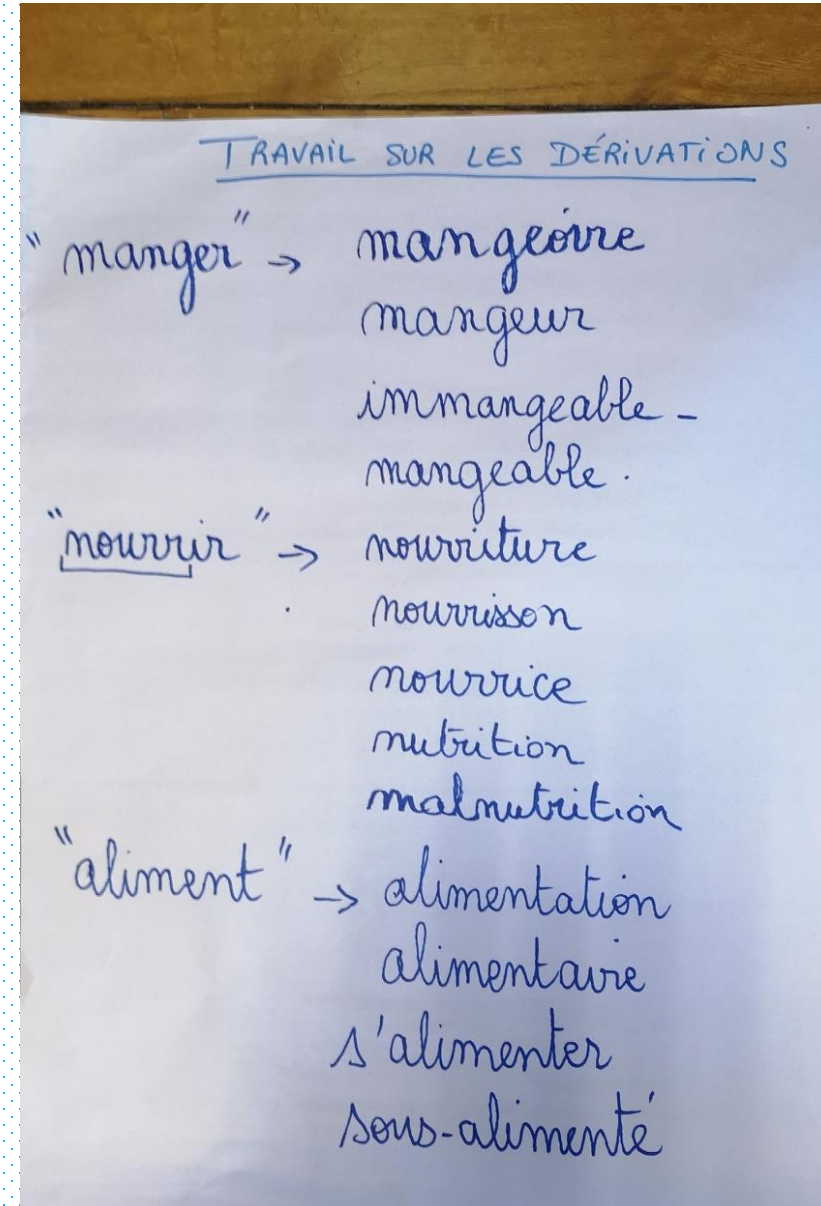 TRAVAIL SUR LES DÉRIVATIONS
"manger" → mangeoire
mangeur
immangeable -
mangeable.
"nourrir" → nourriture
nourrisson
nourrice
nutrition
malnutrition
"aliment" → alimentation
alimentaire
s'alimenter
sous-alimenté